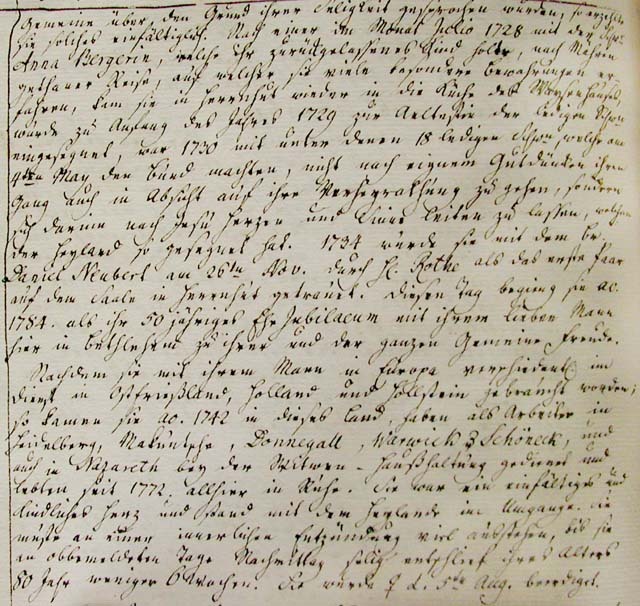 Gemeine über, den Grund ihrer Seligkeit gesprochen wurden, so erzehlte
Sie solches einfältiglich. Nach einer im Monat Julio 1728 mit der Schw.
Anna Bergerin, welche ihr zurückgelassenes Kind holte, nach Mähren
gethaner Reise, auf welcher sie viele besondere Bewahrungen er-
fahren, kam sie in Herrnhut wieder in die Küche des Waysenhauses,
wurde zu Anfang des Jahres 1729 zur Aeltestin der ledigen Schwn
eingesegnet, war 1730 mit unter denen 18 ledigen Schwn, welche am
4ten May den Bund machten, nicht nach eignem Gutdünken ihren
Gang auch in Absicht auf ihre Verheyrathung zu gehen, sondern
sich darinn nach Jesu Herzen und Sinne leiten zu lassen, welches
der Heyland so gesegnet hat. 1734 wurde sie mit dem Br.
David Neubert am 26ten Nov. durch H. Rothe als das erste Paar
auf dem Saale in Herrnhut getrauet. Diesen Tag beging sie ao.
1784. als ihr 50 jähriges Ehe Jubilaeum mit ihrem lieben Mann
hier in Bethlehem zu ihrer und der ganzen Gemeine Freude.
Nachdem sie mit ihrem Mann in Europa verschiedentl. im
Dienst in Ostfriesland, Holland und Hollstein gebraucht worden;
so kamen sie ao. 1742 in dieses Land, haben als Arbeiter in
Heidelberg, Donnegall, Warwick & Schöneck, und
auch in Nazareth bey der Witwen-Haußhaltung gedienet und
lebten seit 1772. allhier in Ruhe. Sie war ein einfältiges und
kindliches Herz und stand mit dem Heylande im Umgange. Sie
mußte an einer innerlichen Entzündung viel ausstehen, bis sie
an obbemeldeten Tage Nachmittag selig entschlief ihres Alters
80 Jahr weniger 6 Wochen. Sie wurde d. 5ten Aug. beerdiget.